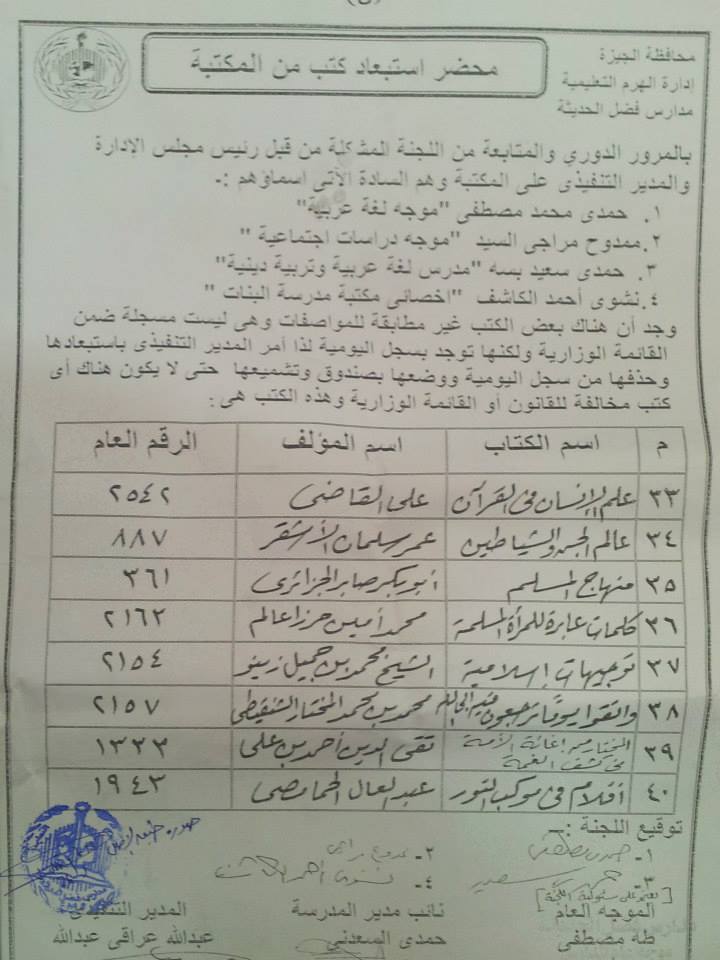 محافظة الجيزة
إدارة الهرم التعليمية
مدارس فضل الحديثة
محضر استبعاد كتب من المكتبة
بالمرور الدوري والمتابعة من اللجنة المشكلة من قبل رئيس مجلس الإدارة
والمدير التنفيذى على المكتبة وهم السادة الأتى اسماؤهم :-
١. حمدى محمد مصطفى "موجه لغة عربية"
٢.ممدوح مراجى السيد "موجه دراسات اجتماعية "
٣. حمدى سعيد بسه "مدرس لغة عربية وتربية دينية"
٤.نشوى أحمد الكاشف "اخصائى مكتبة مدرسة البنات "
وجد أن هناك بعض الكتب غير مطابقة للمواصفات وهى ليست مسجلة ضمن
القائمة الوزارية ولكنها توجد بسجل اليومية لذا أمر المدير التنفيذى باستبعادها
وحذفها من سجل اليومية ووضعها بصندوق وتشميعها حتى لا يكون هناك أى
كتب مخالفة للقانون أو القائمة الوزارية وهذه الكتب هى :
م اسم الكتاب اسم المؤلف الرقم العام
٣٣ علم الإنسان فى القرآن على القاضى ٢٥٤٢
٣٤ عالم الجن والشياطين عمر سلمان الأشقر ٨٨٧
٣٥ منهاج المسلم أبو بكر صابر الجزائرى ٣٦١
٣٦ كلمات عابرة للمرأة المسلمة محمد أمين مرزا عالم ٢١٦٢
٣٧ توجيهات إسلامية الشيخ محمد بن جميل زينو ٢١٥٤
٣٨ واتقوا يوما ترجعون فيه إلى الله محمد بن محمد المختار الشنقيطى ٢١٥٧
٣٩ المختار من إغاثة الأمة فى كشف الغمة تقى الدين أحمد بن على ١٣٣٣
٤٠ أقلام فى موكب النور عبد العال الحمامصى ١٩٤٣
توقيع اللجنة :
١- حمدى مصطفى ٢- ممدوح مراجى
٣- سعيد ٤- نشوى أحمد
الموجه العام نائب مدير المدرسة المدير التنفيذى
طه مصطفى حمدى السعدني عبدالله عراقى عبدالله